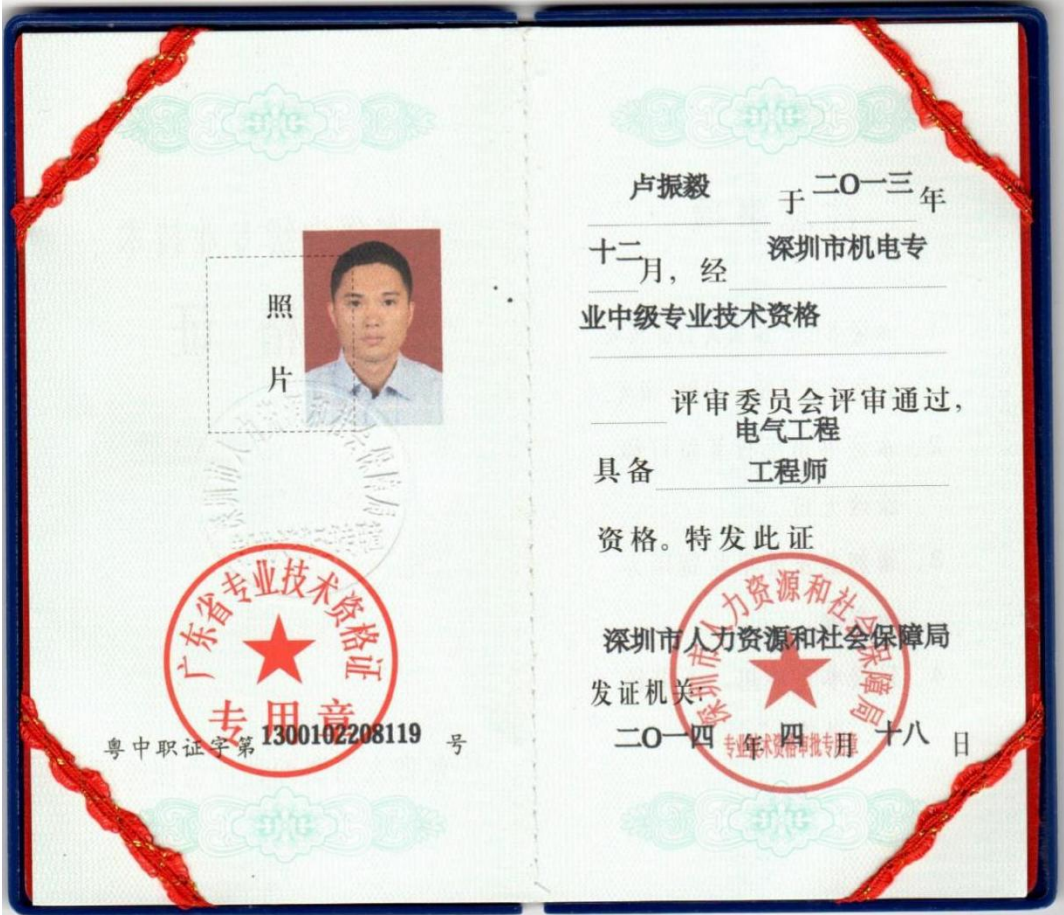 照
片
深圳市人力资源和社会保障局
广东省专业技术资格证
专用章
粤中职证字第1300102208119号
卢振毅 于二〇一三年
十二月，经 深圳市机电专
业中级专业技术资格
评审委员会评审通过，
电气工程
具备 工程师
资格。特发此证
深圳市人力资源和社会保障局
深圳市人力资源和社会保障局
发证机关：
二〇一四年四月十八日
专业技术资格审批专用章